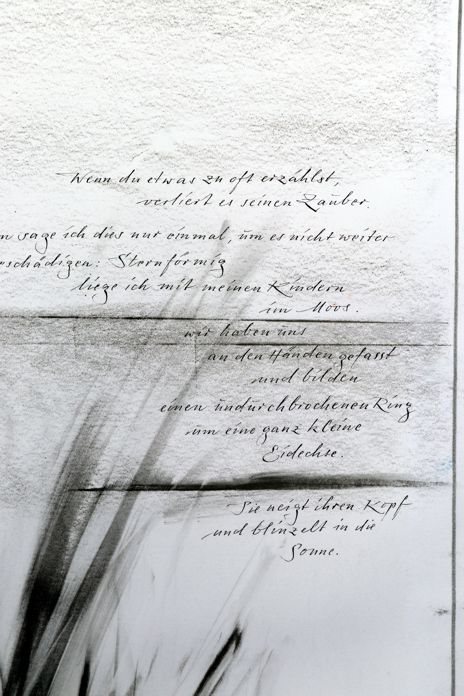 Wenn du etwas zu oft erzählst,
verliert es seinen Zauber.
sage ich dies nur einmal, um es nicht weiter
Sternförmig
liege ich mit meinen Kindern
im Moos.
wir haben uns
an den Händen gefasst
und bilden
einen undurchbrochenen Ring
um eine ganz kleine
Eidechse.
Sie neigt ihren Kopf
und blinzelt in die
Sonne.